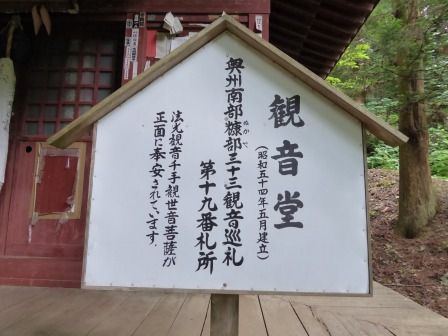 観音堂
(昭和五十四年五月建立)
奥州南部糠部三十三観音巡礼
ぬかべ
第十九番札所
法光観音千手観世音菩薩が
正面に奉安されています。